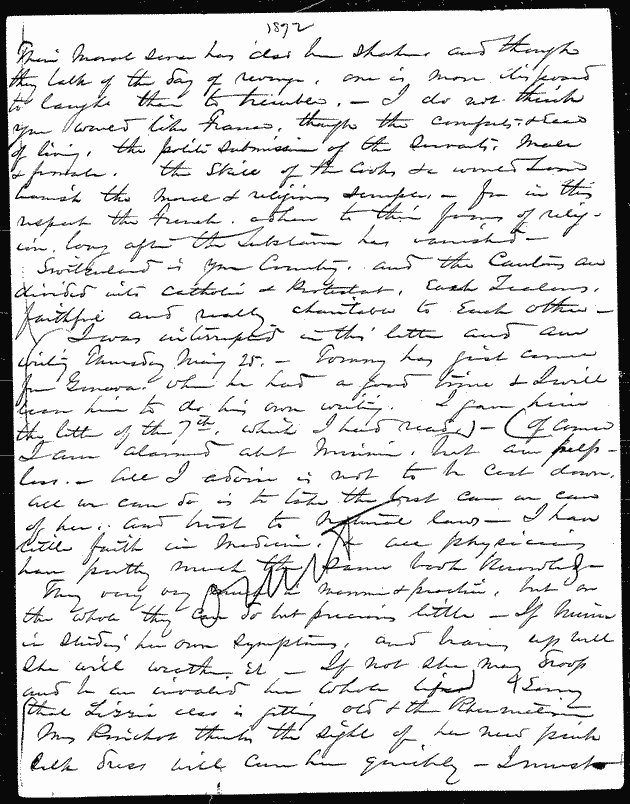 1872
Their moral sense has also been shaken and though
they talk of the day of revenge, one is more disposed
to laugh than to tremble. – I do not think
you would like France, though the comforts & ease
of living, the polite submission of the servants, male
& female, the skill of the Cooks &c would soon
banish the moral & religious scruples – for in this
respect the French adhere to their forms of relig-
ion, long after the substance has vanished –
Switzerland is your Country, and the Cantons are
divided into Catholic & Protestant, Each Zealous,
faithful and really charitable to Each other –
I was interrupted in this letter and am
writing Thursday May 25. – Tommy has just come
fm Geneva where he had a good time & I will
leave him to do his own writing. I gave him
the letter of the 7th, which I had read – (Of course
I am alarmed abt Minnie, but am help-
less. – All I advise is not to be cast down.
All we can do is to take the best care we can
of her, and trust to natural laws – I have
little faith in Medicine, & all physicians
have pretty much the same book knowledge
They vary very much in manner & practice, but on
the whole they can do but precious little – If Minnie
is studying her own symptoms, and bears up well
she will weather it – If not she may droop
and be an invalid her whole life) & Sorry
that Lizzie also is getting old & the Rheumatism
Mrs thinks the sight of her new pink
silk dress will cure her quickly – I must